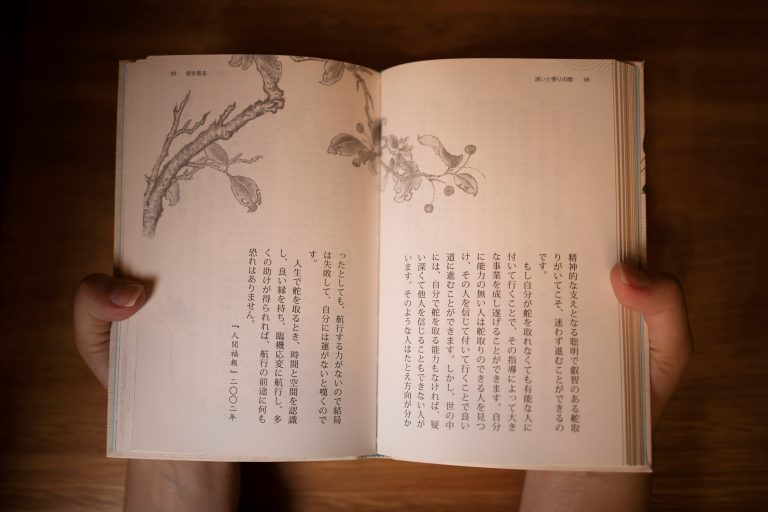 迷いと悟りの間 98
精神的な支えとなる聡明で叡智のある舵取
りがいてこそ、迷わず進むことができるの
です。
　もし自分が舵を取れなくても有能な人に
付いて行くことで、その指導によって大き
な事業を成し遂げることができます。自分
に能力の無い人は舵取りのできる人を見つ
け、その人を信じて付いて行くことで良い
道に進むことができます。しかし、世の中
には、自分で舵を取る能力もなければ、疑
い深くて他人を信じることもできない人が
います。そのような人はたとえ方向が分か
99 舵を取る
ったとしても、航行する力がないので結局
は失敗して、自分には運がないと嘆くので
す。
　人生で舵を取るとき、時間と空間を認識
し、良い縁を持ち、臨機応変に航行し、多
くの助けが得られれば、航行の前途に何も
恐れはありません。
『人間福報』二〇〇二年